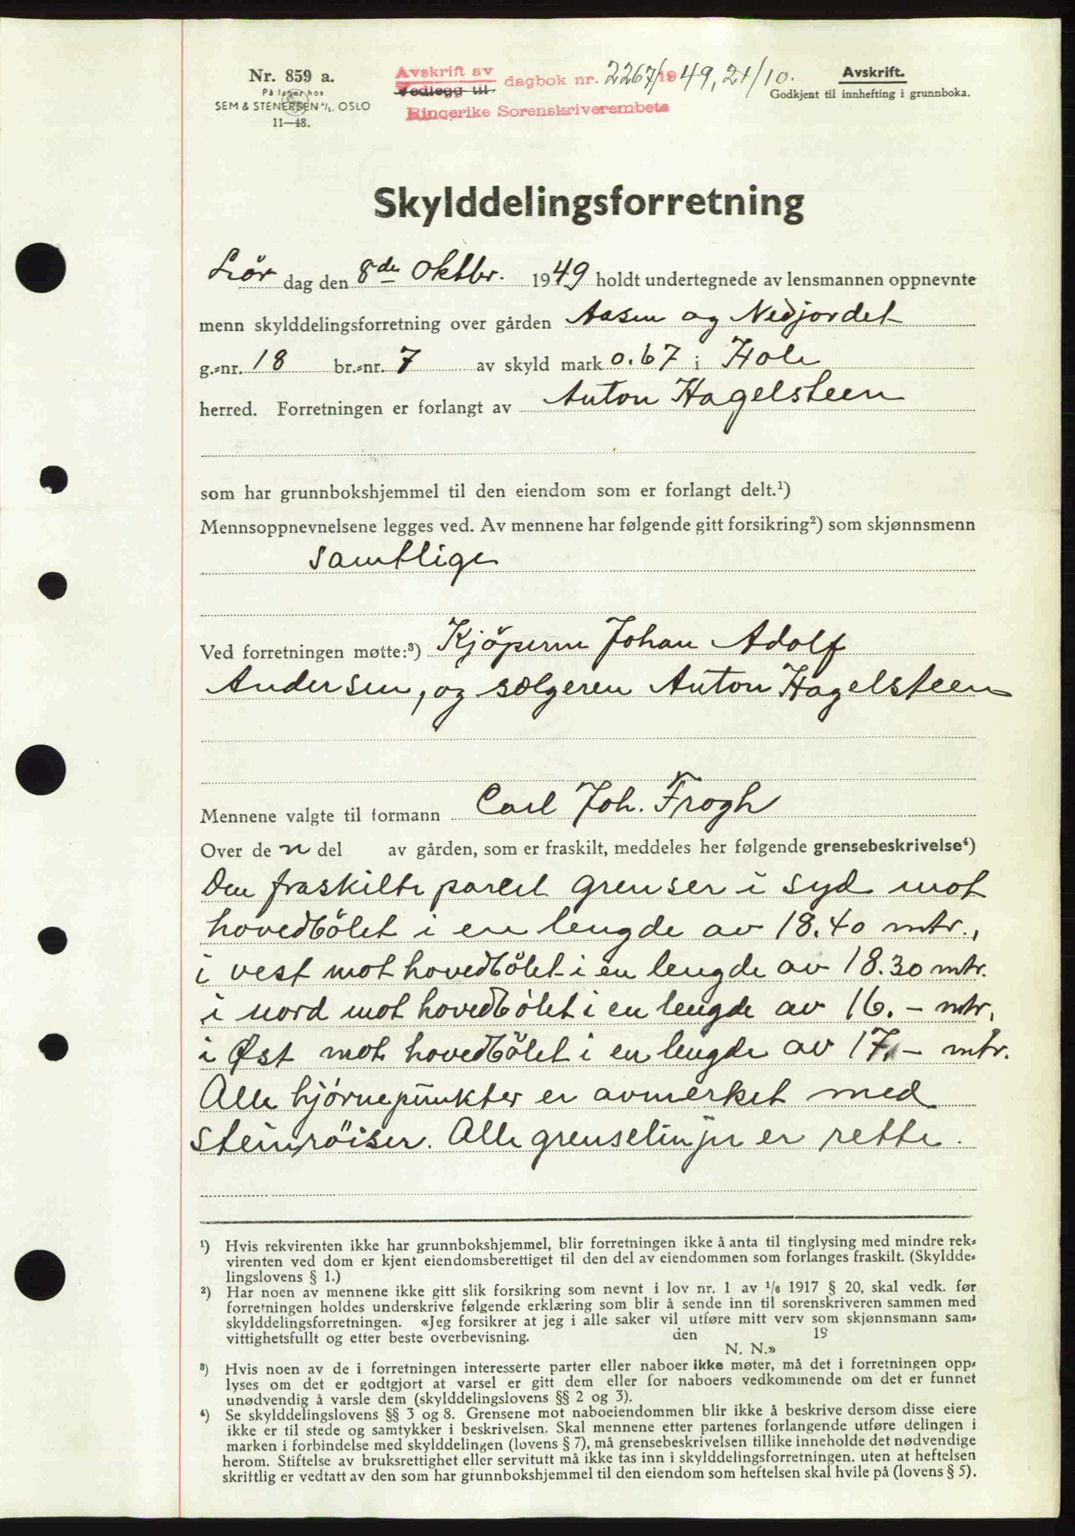 Nr. 859 a.
På lager hos
SEM & STENERSEN A/S. OSLO
11—48.
Avskrift av
Vedlegg til dagbok nr. 2267/1949, 21/10.
Ringerike Sorenskriverembete
Avskrift.
Godkjent til innhefting i grunnboka.
Skylddelingsforretning
Lör dag den 8de Oktbr. 1949 holdt undertegnede av lensmannen oppnevnte
menn skylddelingsforretning over gården Aasen og Nedjordet
g.-nr. 18 br.-nr. 7 av skyld mark 0.67 i Hole
herred. Forretningen er forlangt av Anton Hagelsteen
som har grunnbokshjemmel til den eiendom som er forlangt delt.¹)
Mennsoppnevnelsene legges ved. Av mennene har følgende gitt forsikring²) som skjønnsmenn
samtlige
Ved forretningen møtte:³) Kjöperen Johan Adolf
Andersen, og sælgeren Anton Hagelsteen
Mennene valgte til formann Carl Joh. Frogh
Over de n del av gården, som er fraskilt, meddeles her følgende grensebeskrivelse⁴)
Den fraskilte parsel grenser i syd mot
hovedbölet i en lengde av 18.40 mtr.,
i vest mot hovedbölet i en lengde av 18.30 mtr.
i nord mot hovedbölet i en lengde av 16.- mtr,
i Øst mot hovedbölet i en lengde av 17.- mtr.
Alle hjörnepunkter er avmerket med
steinröiser. Alle grenselinjer er rette.
¹) Hvis rekvirenten ikke har grunnbokshjemmel, blir forretningen ikke å anta til tinglysing med mindre rek-
virenten ved dom er kjent eiendomsberettiget til den del av eiendommen som forlanges fraskilt. (Skyldde-
lingslovens § 1.)
²) Har noen av mennene ikke gitt slik forsikring som nevnt i lov nr. 1 av 1/6 1917 § 20, skal vedk. før
forretningen holdes underskrive følgende erklæring som blir å sende inn til sorenskriveren sammen med
skylddelingsforretningen. «Jeg forsikrer at jeg i alle saker vil utføre mitt verv som skjønnsmann sam-
vittighetsfullt og etter beste overbevisning. den 19
N. N.»
³) Hvis noen av de i forretningen interesserte parter eller naboer ikke møter, må det i forretningen opp-
lyses om det er godtgjort at varsel er gitt dem eller for naboers vedkommende om det er funnet
unødvendig å varsle dem (skylddelingslovens §§ 2 og 3).
⁴) Se skylddelingslovens §§ 3 og 8. Grensene mot naboeiendommen blir ikke å beskrive dersom disse eiere
ikke er til stede og samtykker i beskrivelsen. Skal mennene etter partenes forlangende utføre delingen i
marken i forbindelse med skylddelingen (lovens § 7), må grensebeskrivelsen tillike inneholde det nødvendige
herom. Stiftelse av bruksrettighet eller servitutt må ikke tas inn i skylddelingsforretningen. uten at heftelsen
skriftlig er vedtatt av den som har grunnbokshjemmel til den eiendom som heftelsen skal hvile på (lovens § 5).